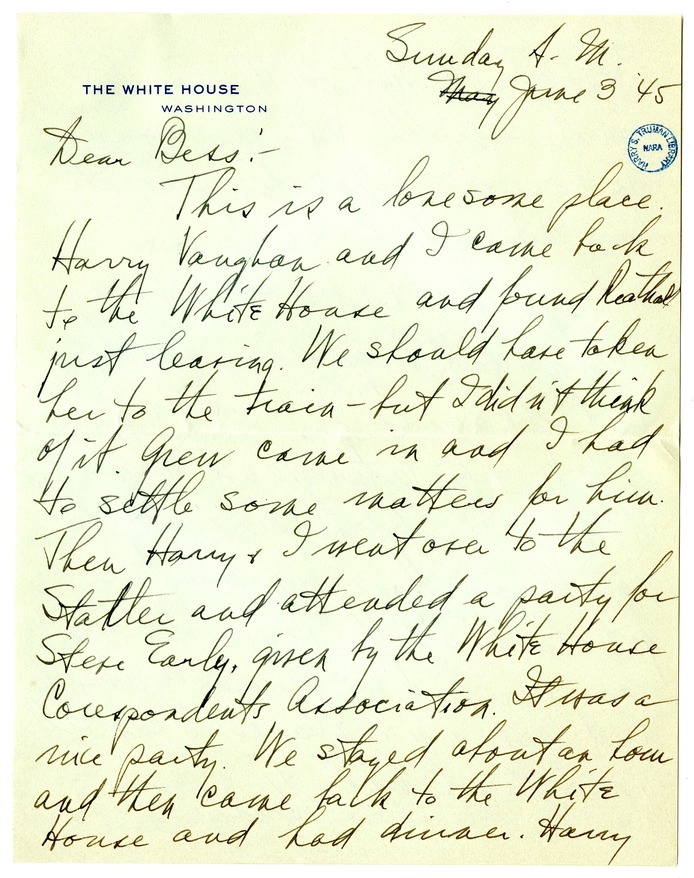 Sunday A.M.
May June 3 '45
THE WHITE HOUSE
WASHINGTON
HARRY S. TRUMAN LIBRARY
NARA
Dear Bess:-
This is a lonesome place.
Harry Vaughan and I came back
to the White House and found Reathal
just leaving. We should have taken
her to the train - but I didn't think
of it. Grew came in and I had
to settle some matters for him.
Then Harry & I went over to the
Statler and attended a party for
Steve Early, given by the White House
Corespondents Association. It was a
nice party. We stayed about an hour
and then came back to the White
House and had dinner. Harry